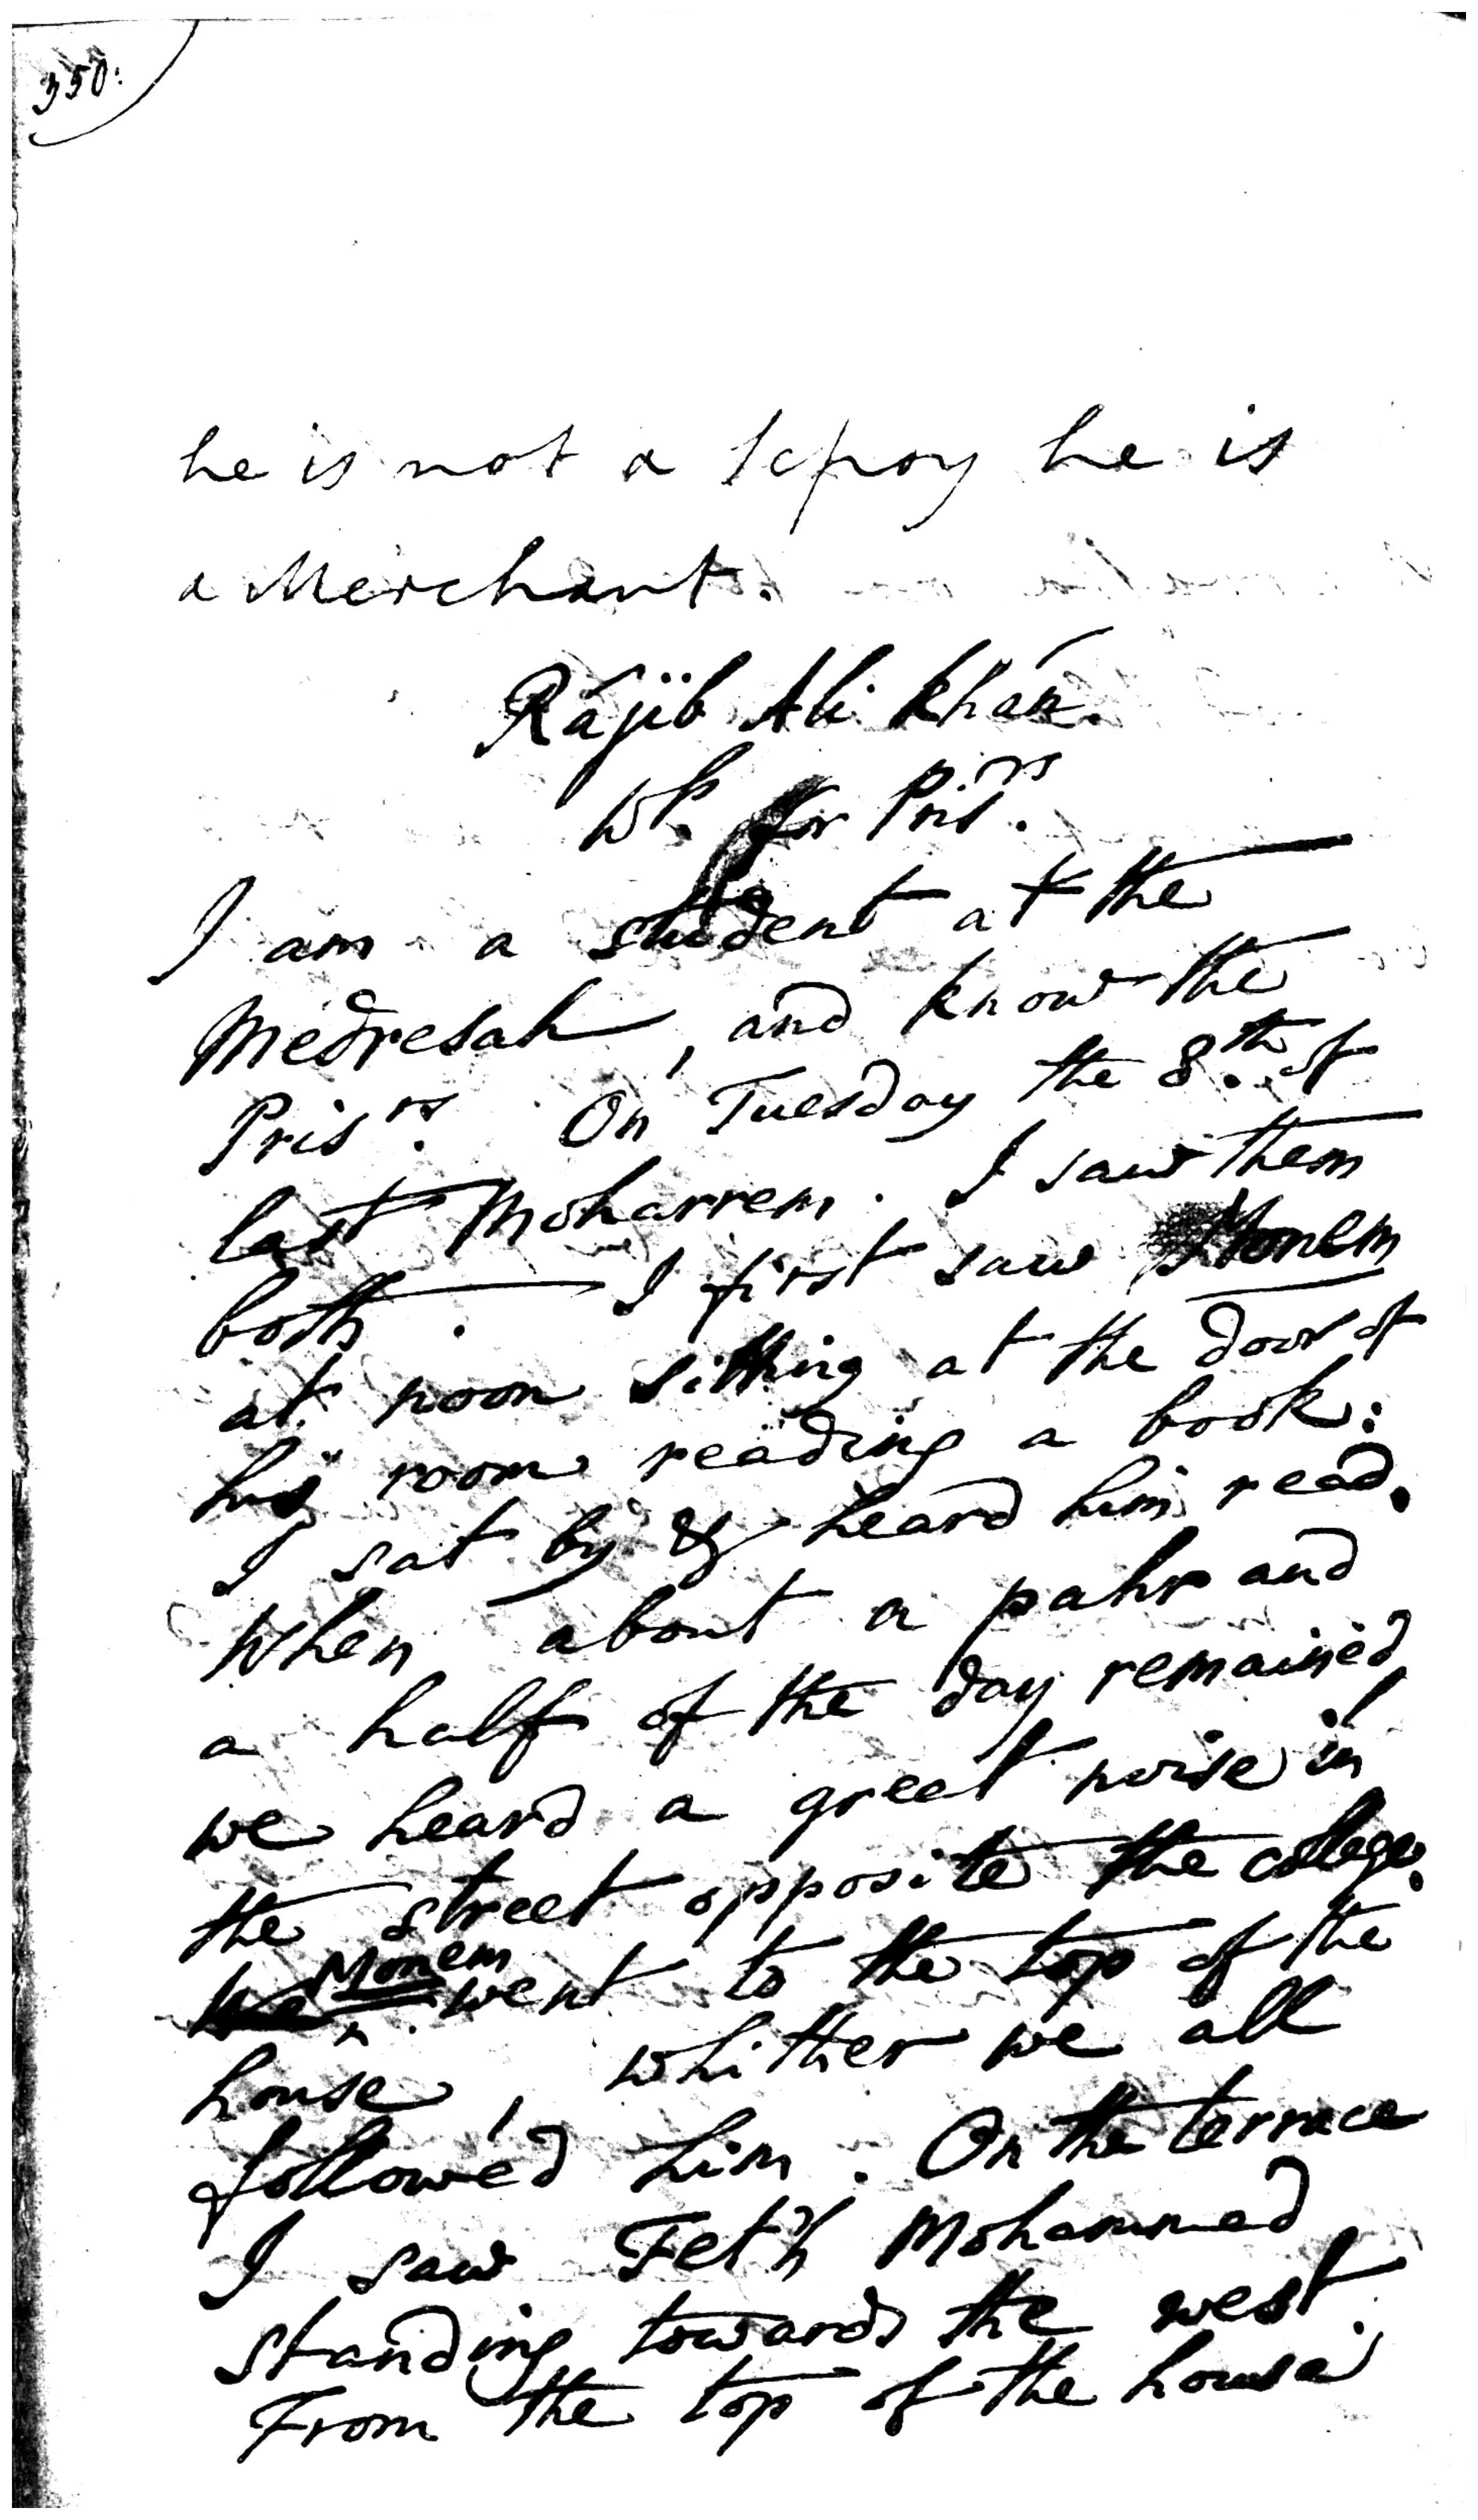 350:
he is not a sepoy he is
a Merchant.
Rajib Ali Khán.
Ws. for Prisrs.
I am a student at the
Medresah, and know the
Prisrs. On Tuesday the 8.th of
last Moharrem. I saw them
both. I first saw Monem
at noon sitting at the door of
his room reading a book.
I sat by & heard him read.
When about a pahr and
a half of the day remained
we heard a great noise in
the street opposite the college.
Monem
went to the top of the
house, whither we all
followed him. On the terrace
I saw Feth Mohammed
standing towards the west.
From the top of the house